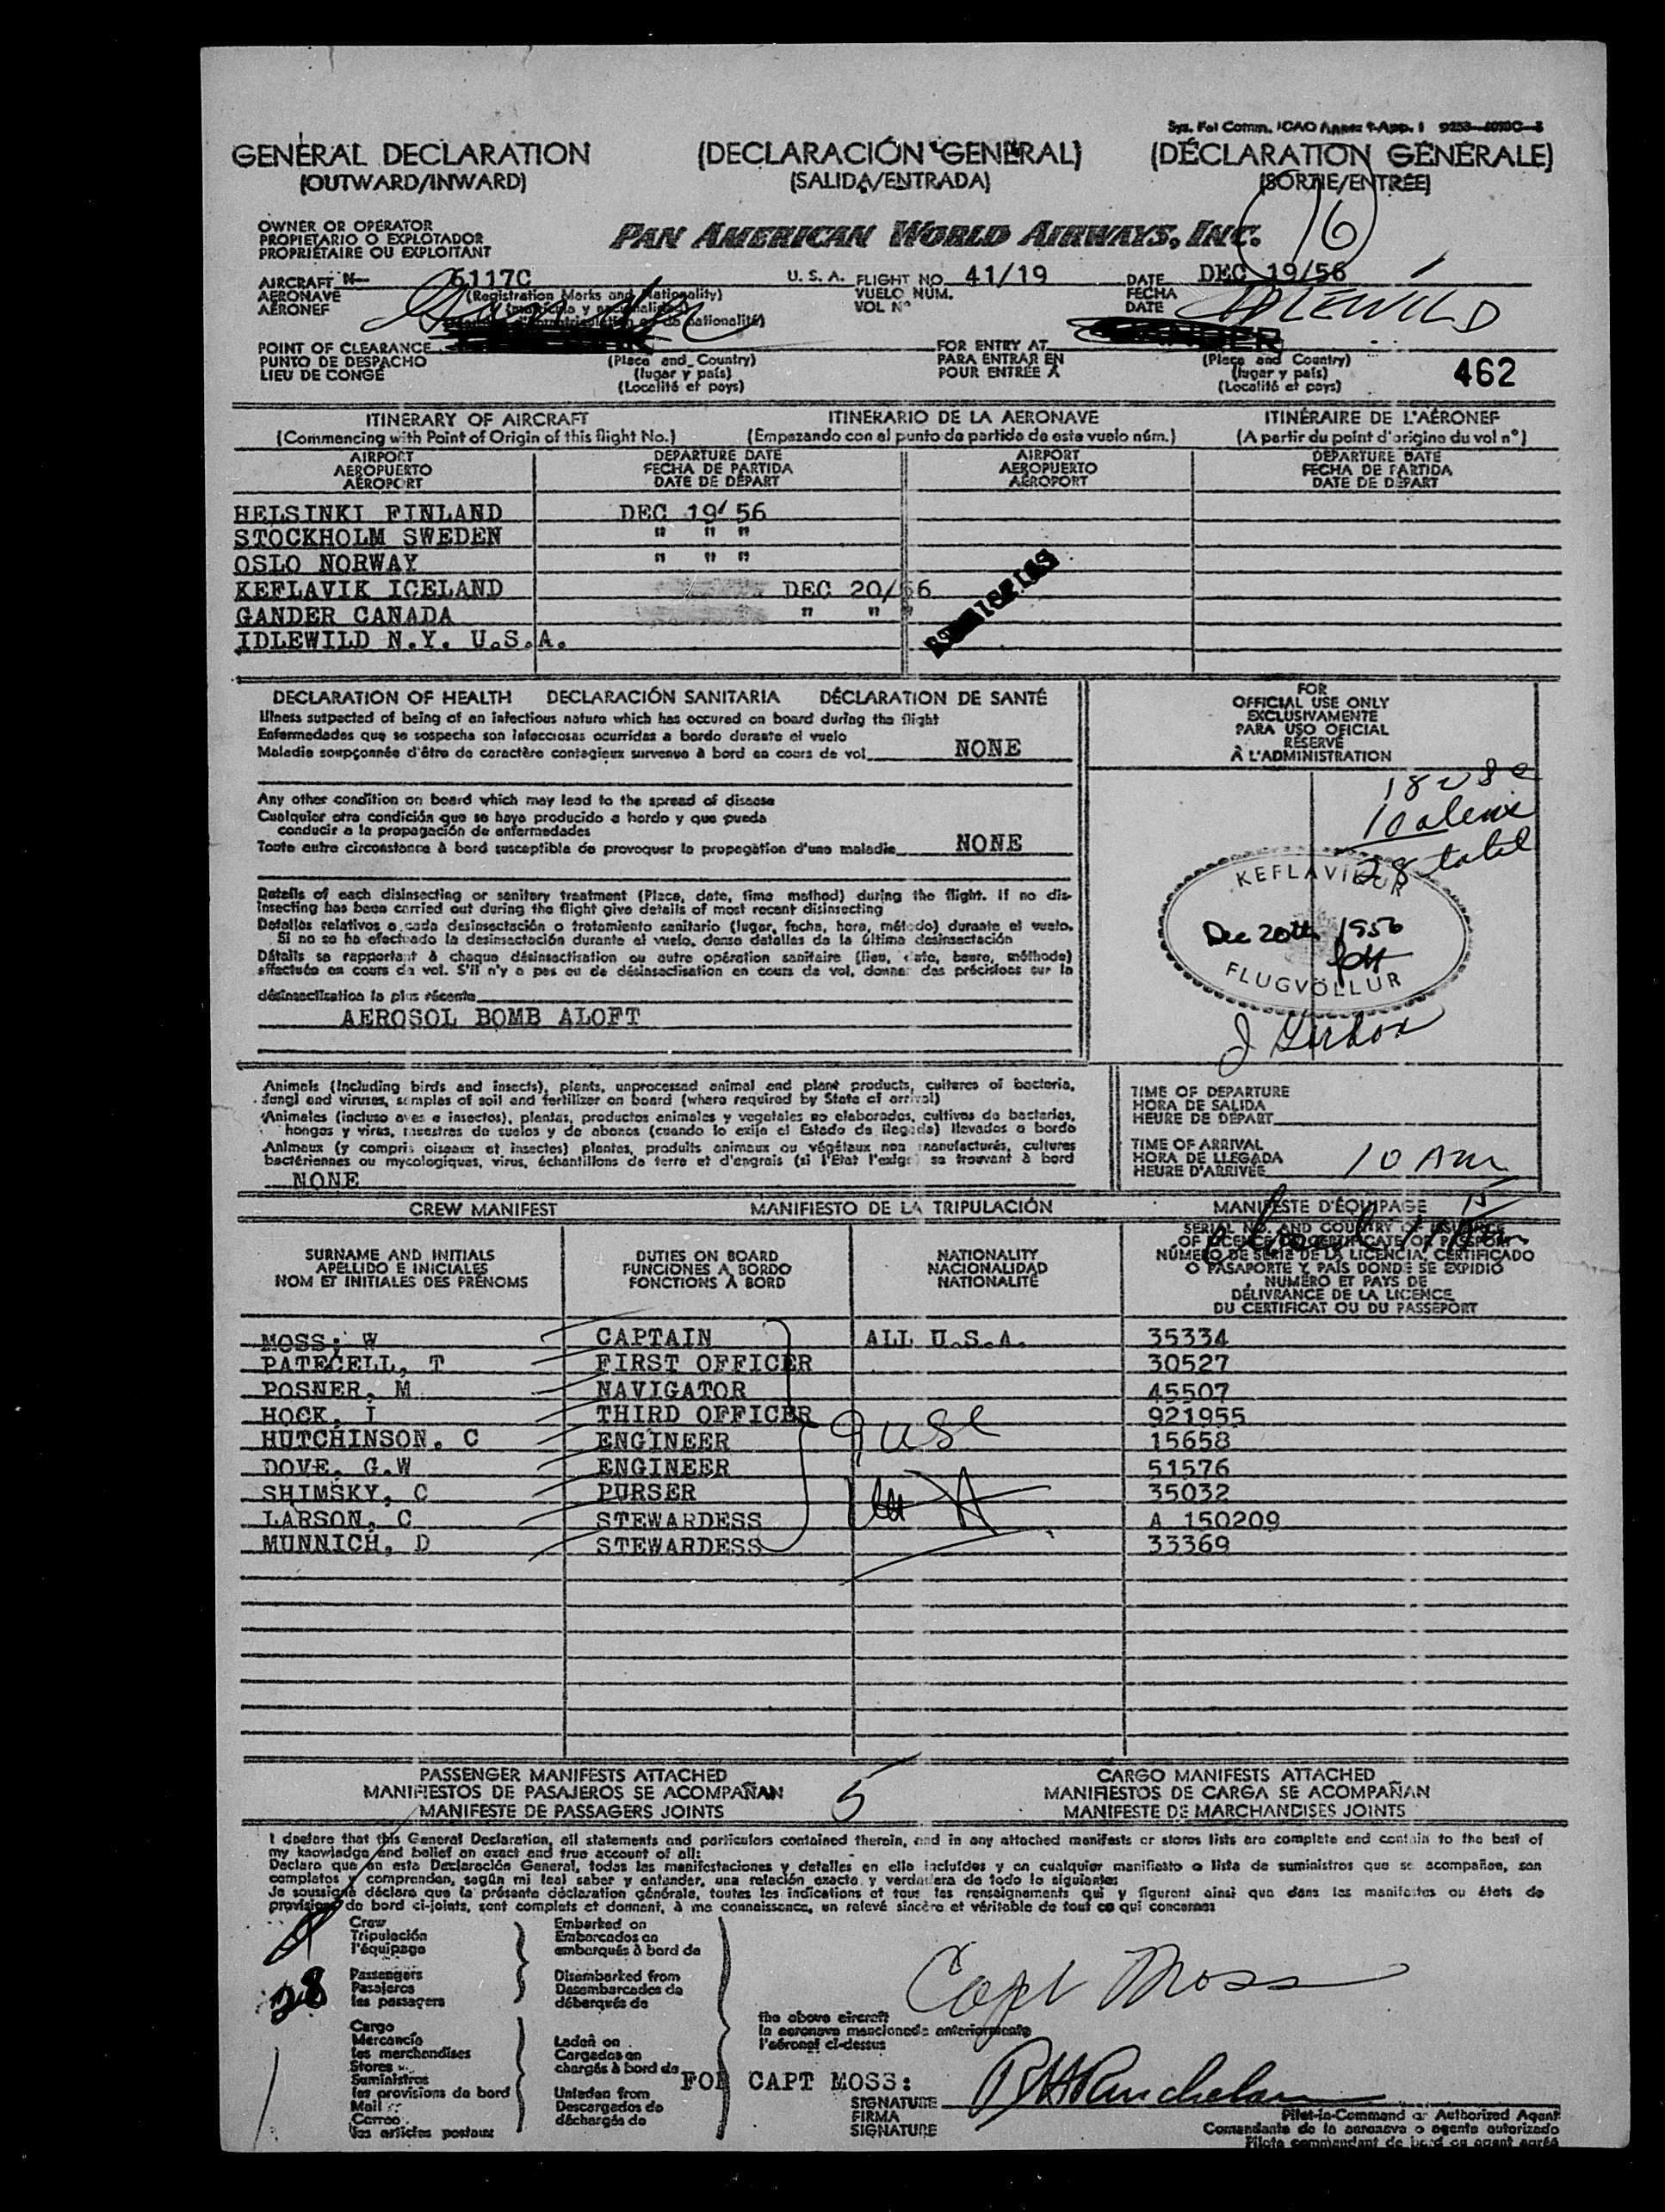 Sys. Fol Comm. ICAO Annex 9-App. 1
GENERAL DECLARATION (DECLARACIÓN GENERAL) (DÉCLARATION GÉNÉRALE)
(OUTWARD/INWARD) (SALIDA/ENTRADA) (SORTIE/ENTRÉE)
16
OWNER OR OPERATOR
PROPIETARIO O EXPLOTADOR
PROPRIÉTAIRE OU EXPLOITANT
PAN AMERICAN WORLD AIRWAYS, INC.
AIRCRAFT N- 6117C U. S. A. FLIGHT NO. 41/19 DATE DEC 19/56
AERONAVE (Registration Marks and Nationality) VUELO NÚM. FECHA
AÉRONEF VOL Nº DATE
Gander IDLEWILD
POINT OF CLEARANCE FOR ENTRY AT
PUNTO DE DESPACHO (Place and Country) PARA ENTRAR EN (Place and Country)
LIEU DE CONGÉ (lugar y país) POUR ENTRÉE À (lugar y país)
(Localité et pays) (Localité et pays)
462
ITINERARY OF AIRCRAFT ITINERARIO DE LA AERONAVE ITINÉRAIRE DE L'AÉRONEF
(Commencing with Point of Origin of this flight No.) (Empezando con el punto de partida de este vuelo núm.) (A partir du point d'origine du vol nº)
AIRPORT DEPARTURE DATE AIRPORT DEPARTURE DATE
AEROPUERTO FECHA DE PARTIDA AEROPUERTO FECHA DE PARTIDA
AÉROPORT DATE DE DÉPART AÉROPORT DATE DE DÉPART
HELSINKI FINLAND DEC 19/56
STOCKHOLM SWEDEN " " "
OSLO NORWAY " " "
KEFLAVIK ICELAND DEC 20/56
GANDER CANADA " " "
IDLEWILD N.Y. U.S.A.
DECLARATION OF HEALTH DECLARACIÓN SANITARIA DÉCLARATION DE SANTÉ
Illness suspected of being of an infectious nature which has occured on board during the flight
Enfermedades que se sospecha son infecciosas ocurridas a bordo durante el vuelo
Maladie soupçonnée d'être de caractère contagieux survenue à bord en cours de vol NONE
Any other condition on board which may lead to the spread of disease
Cualquier otra condición que se haya producido a bordo y que pueda
conducir a la propagación de enfermedades
Toute autre circonstance à bord susceptible de provoquer la propagation d'une maladie NONE
Details of each disinsecting or sanitary treatment (Place, date, time method) during the flight. If no dis-
insecting has been carried out during the flight give details of most recent disinsecting
Detalles relativos a cada desinsectación o tratamiento sanitario (lugar, fecha, hora, método) durante el vuelo.
Si no se ha efectuado la desinsectación durante el vuelo, dense detalles de la última desinsectación
Détails se rapportant à chaque désinsectisation ou autre opération sanitaire (lieu, date, heure, méthode)
effectuée en cours de vol. S'il n'y a pas eu de désinsectisation en cours de vol, donner des précisions sur la
désinsectisation la plus récente
AEROSOL BOMB ALOFT
FOR
OFFICIAL USE ONLY
EXCLUSIVAMENTE
PARA USO OFICIAL
RÉSERVÉ
À L'ADMINISTRATION
18 USC
10 aliens
28 total
KEFLAVIKUR
Dec 20th 1956
FLUGVÖLLUR
Animals (Including birds and insects), plants, unprocessed animal and plant products, cultures of bacteria,
fungi and viruses, samples of soil and fertilizer on board (where required by State of arrival)
Animales (incluso aves e insectos), plantas, productos animales y vegetales no elaborados, cultivos de bacterias,
hongos y virus, muestras de suelos y de abonos (cuando lo exija el Estado de llegada) llevados a bordo
Animaux (y compris oiseaux et insectes) plantes, produits animaux ou végétaux non manufacturés, cultures
bactériennes ou mycologiques, virus, échantillons de terre et d'engrais (si l'Etat l'exige) se trouvant à bord
NONE
TIME OF DEPARTURE
HORA DE SALIDA
HEURE DE DÉPART
TIME OF ARRIVAL
HORA DE LLEGADA
HEURE D'ARRIVÉE 10 AM
CREW MANIFEST MANIFIESTO DE LA TRIPULACIÓN MANIFESTE D'ÉQUIPAGE
SURNAME AND INITIALS DUTIES ON BOARD NATIONALITY SERIAL NO. AND COUNTRY OF ISSUANCE
APELLIDO E INICIALES FUNCIONES A BORDO NACIONALIDAD OF LICENCE OR CERTIFICATE OR PASSPORT
NOM ET INITIALES DES PRÉNOMS FONCTIONS À BORD NATIONALITÉ NÚMERO DE SERIE DE LA LICENCIA, CERTIFICADO
O PASAPORTE Y PAÍS DONDE SE EXPIDIÓ
NUMÉRO ET PAYS DE
DÉLIVRANCE DE LA LICENCE
DU CERTIFICAT OU DU PASSEPORT
MOSS; W CAPTAIN ALL U.S.A. 35334
PATECELL, T FIRST OFFICER 30527
POSNER, M NAVIGATOR 45507
HOCK, I THIRD OFFICER 921955
HUTCHINSON, C ENGINEER 15658
DOVE, G.W ENGINEER 51576
SHIMSKY, C PURSER 35032
LARSON, C STEWARDESS A 150209
MUNNICH, D STEWARDESS 33369
9 USC
PASSENGER MANIFESTS ATTACHED CARGO MANIFESTS ATTACHED
MANIFIESTOS DE PASAJEROS SE ACOMPAÑAN 5 MANIFIESTOS DE CARGA SE ACOMPAÑAN
MANIFESTE DE PASSAGERS JOINTS MANIFESTE DE MARCHANDISES JOINTS
I declare that this General Declaration, all statements and particulars contained therein, and in any attached manifests or stores lists are complete and contain to the best of
my knowledge and belief an exact and true account of all:
Declaro que en esta Declaración General, todas las manifestaciones y detalles en ella incluídos y en cualquier manifiesto o lista de suministros que se acompañen, son
completos y comprenden, según mi leal saber y entender, una relación exacta y verdadera de todo lo siguiente:
Je soussigné déclare que la présente déclaration générale, toutes les indications et tous les renseignements qui y figurent ainsi que dans les manifestes ou états de
provisions de bord ci-joints, sont complets et donnent, à ma connaissance, un relevé sincère et véritable de tout ce qui concerne:
Crew Embarked on
Tripulación Embarcados en
l'équipage embarqués à bord de
28 Passengers Disembarked from
Pasajeros Desembarcados de
les passagers débarqués de
Capt Moss
Cargo
Mercancía Laden on
les merchandises Cargados en
Stores chargés à bord de
Suministros
les provisions de bord Unladen from
Mail Descargados de
Correo déchargés de
les articles postaux
the above aircraft
la aeronave mencionada anteriormente
l'aéronef ci-dessus
FOR CAPT MOSS:
SIGNATURE
FIRMA
SIGNATURE
Pilot-in-Command or Authorized Agent
Comandante de la aeronave o agente autorizado
Pilote commandant de bord ou agent agréé